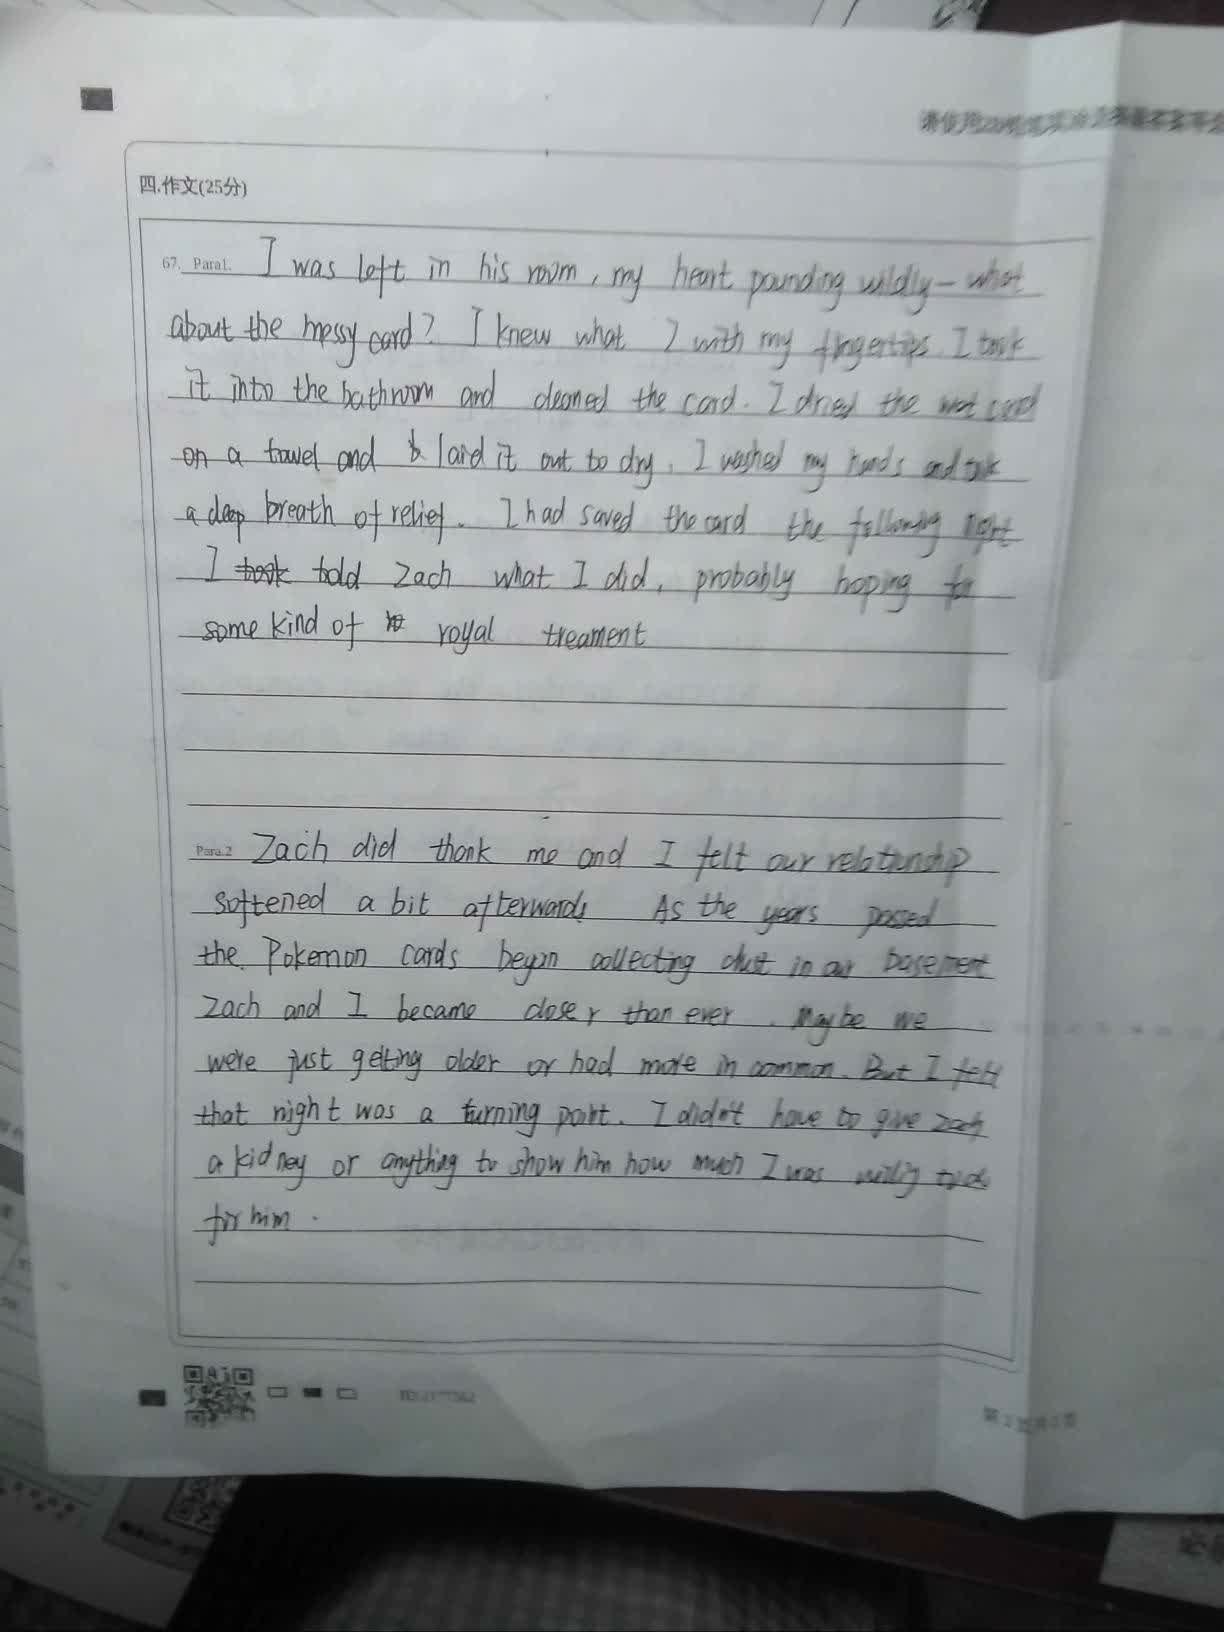 四.作文(25分)
67. Para1. I was left in his room, my heart pounding wildly — what
about the messy card? I knew what I with my fingertips I took
it into the bathroom and cleaned the card. I dried the wet card
on a towel and laid it out to dry. I washed my hands and
a deep breath of relief. I had saved the card the following night
I told Zach what I did, probably hoping for
some kind of royal treament
Para.2 Zach did thank me and I felt our relationship
softened a bit afterwards As the years passed
the Pokemon cards began collecting dust in our basement
Zach and I became closer than ever. Maybe we
were just getting older or had more in common. But I felt
that night was a turning point. I didn't have to give Zach
a kidney or anything to show him how much I was
for him.